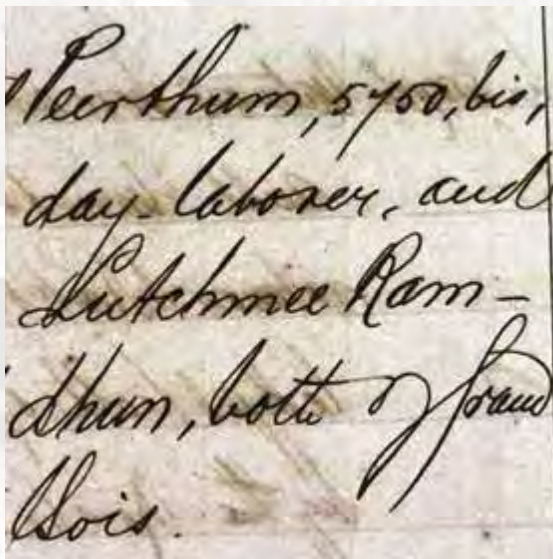 Peerthum, 5750, bis,
day-laborer, and
Lutchmee Ram-
dhun, both of Grand
Bois.